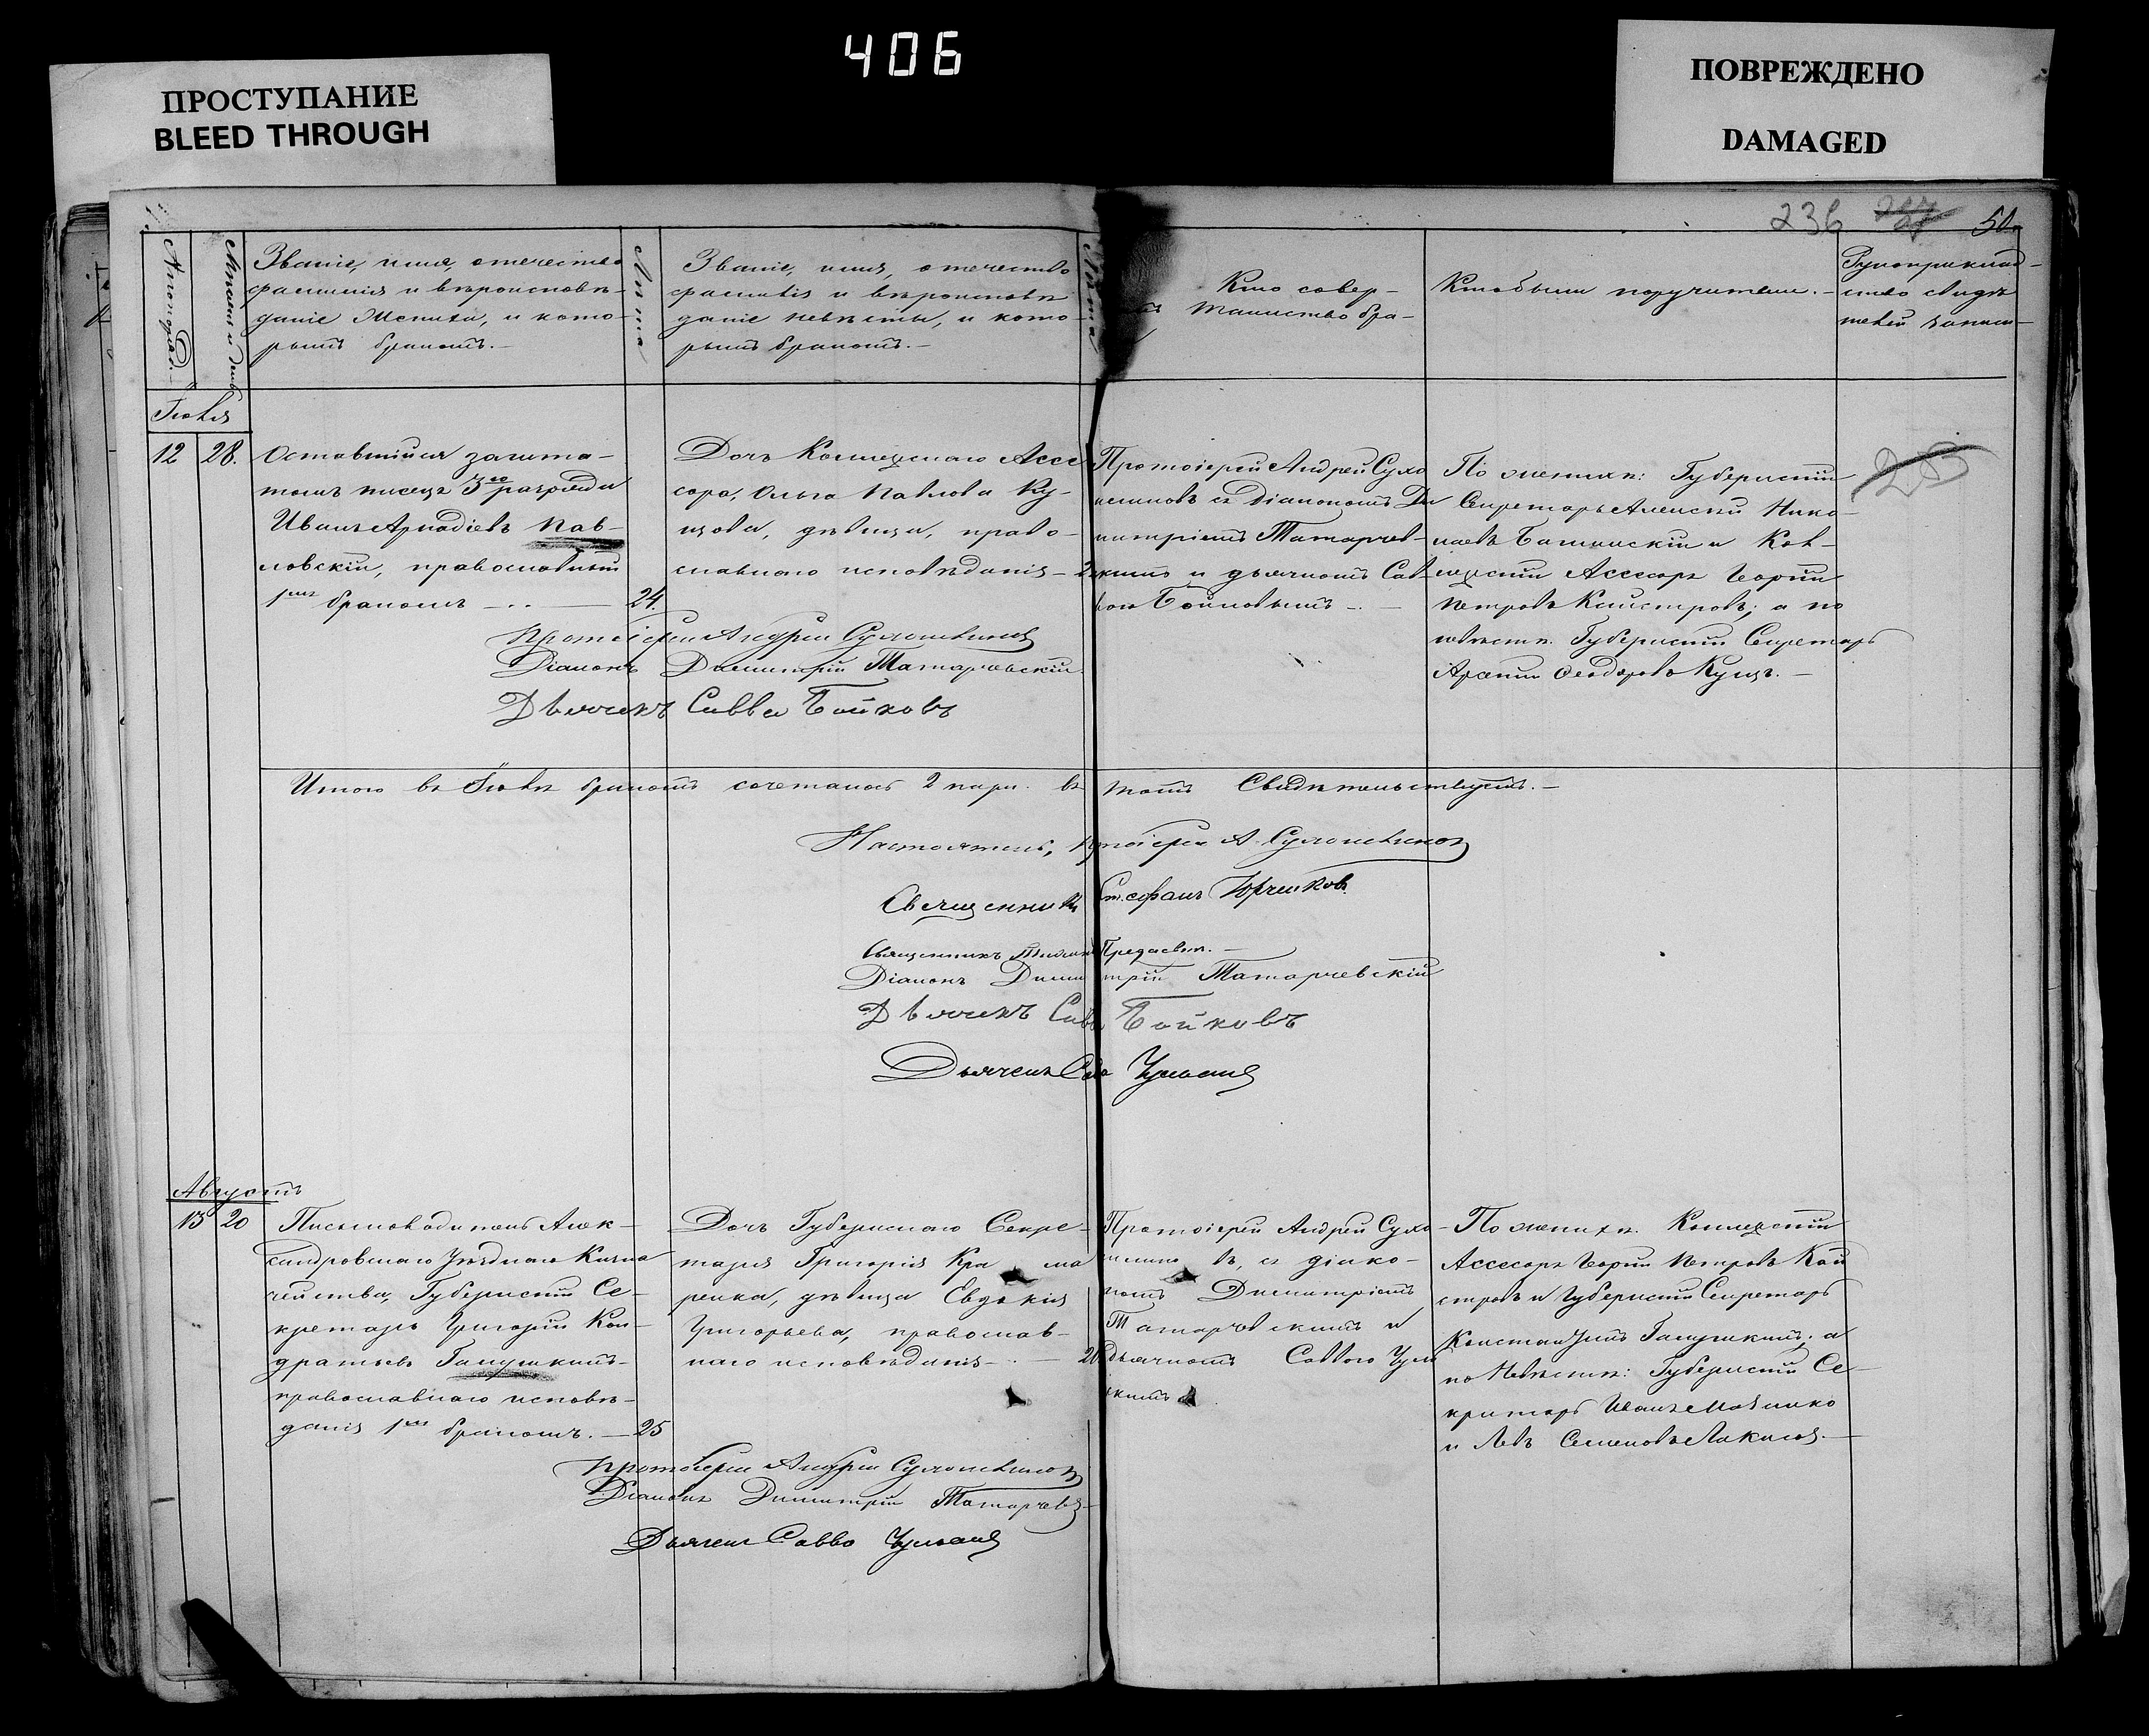 406
ПРОСТУПАНИЕ
BLEED THROUGH
ПОВРЕЖДЕНО
DAMAGED
236
50
Мѣсяцъ и день
Званіе, имя, отечество
фамилія и вѣроисповѣ-
даніе жениха, и кото-
рымъ бракомъ.-
Лѣта
Званіе, имя, отечество
фамилія и вѣроисповѣ
даніе невѣсты, и кото-
рымъ бракомъ.-
Лѣта
Кто совер-
таинство бра-
Кто были поручители.-
Рукоприклад-
ство свидѣ
телей
Іюля
12 28.
Оставшійся зашта-
томъ писецъ 3го разряда
Иванъ Аркадіевъ Пав-
ловскій, православный
1мъ бракомъ - . . - 24.
Дочь Коллежскаго Ассе
сора, Ольга Павлова Ку-
цова, дѣвица, право-
славнаго исповѣданія - 2
Протоіерей Андрей Сухо
мли­новъ съ Діакономъ Ди
митріемъ Татарчев-
скимъ и дьячкомъ Сав-
вою Бойковымъ -. -
По женихѣ: Губернскій
Секретарь Алексѣй Нико-
лаевъ и Кол-
лежскій Ассесоръ Георгій
Петровъ Кайстровъ; а по
невѣстѣ. Губернскій Секретарь
Арсеній Феодоровъ Куцъ. -
Протоіерей Андрей
Діаконъ Димитрій Татарчевскій
Дьячекъ Савва Бойковъ
Итого въ Іюлѣ бракомъ сочеталось 2 пары. въ томъ Свидѣтельствуютъ. -
Настоятель, Протоіерей А.
Священникъ Стефанъ Юрченков
Священникъ
Діаконъ Димитрій Татарчевскій
Дьячекъ Савва Бойковъ
Дьячекъ Савва
Августъ
13 20
Письмоводитель Алек-
сандровскаго Уѣзднаго Казна
чейства, Губернскій Се-
кретарь Григорій Кон-
дратьевъ Галушкинъ-
православнаго исповѣ-
данія 1мъ бракомъ. - 25
Дочь Губернскаго Секре-
таря Григорія Кра ма
ренка, дѣвица Евдокія
Григорьева, православ-
наго исповѣданія - . - 20
Протоіерей Андрей Сухо-
въ, съ діако-
номъ Димитріемъ
Татарчевскимъ и
дьячкомъ Саввою
По женихѣ. Коллежскій
Ассесоръ Георгій Петровъ Кай
стровъ и Губернскій Секретарь
Константинъ Галушкинъ; а
по Невѣстѣ: Губернскій Се-
кретарь Иванъ
и Левъ Семеновъ
Протоіерей Андрей
Діаконъ Димитрій Татарчевскій
Дьячекъ Савва